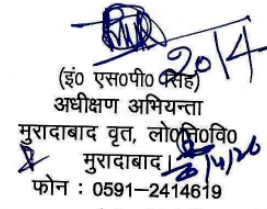 2014
(इं० एस०पी० सिंह)
अधीक्षण अभियन्ता
मुरादाबाद वृत, लो०नि०वि०
मुरादाबाद।
फोन : 0591-2414619